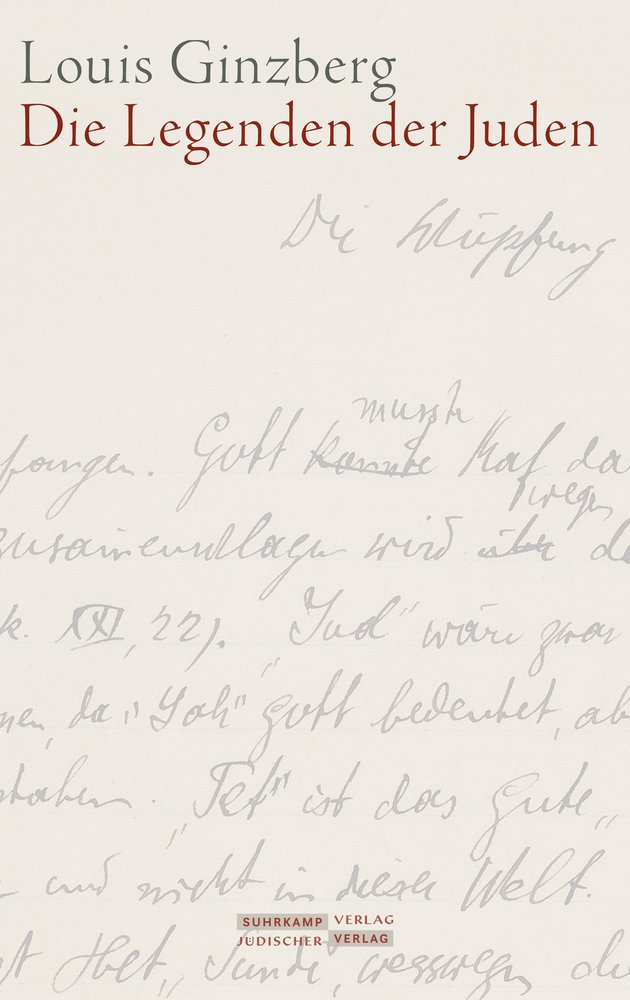 Louis Ginzberg
Die Legenden der Juden
Die Schöpfung
musste
fangen. Gott konnte Kaf da
wegen
zusammenschlagen wird über de
k. XXI, 22). „Jud" wäre zwar
men, da „Yah" Gott bedeutet, ab
staben. „Tet" ist das Gute,
und nicht in dieser Welt.
SUHRKAMP VERLAG
JÜDISCHER VERLAG
Het, „Sünde", wesswegen die